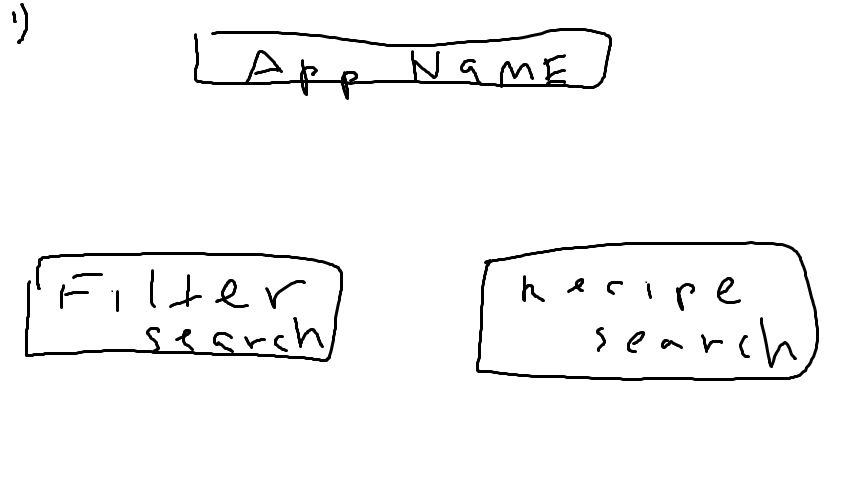 1)
App NamE
Filter
search
Recipe
search